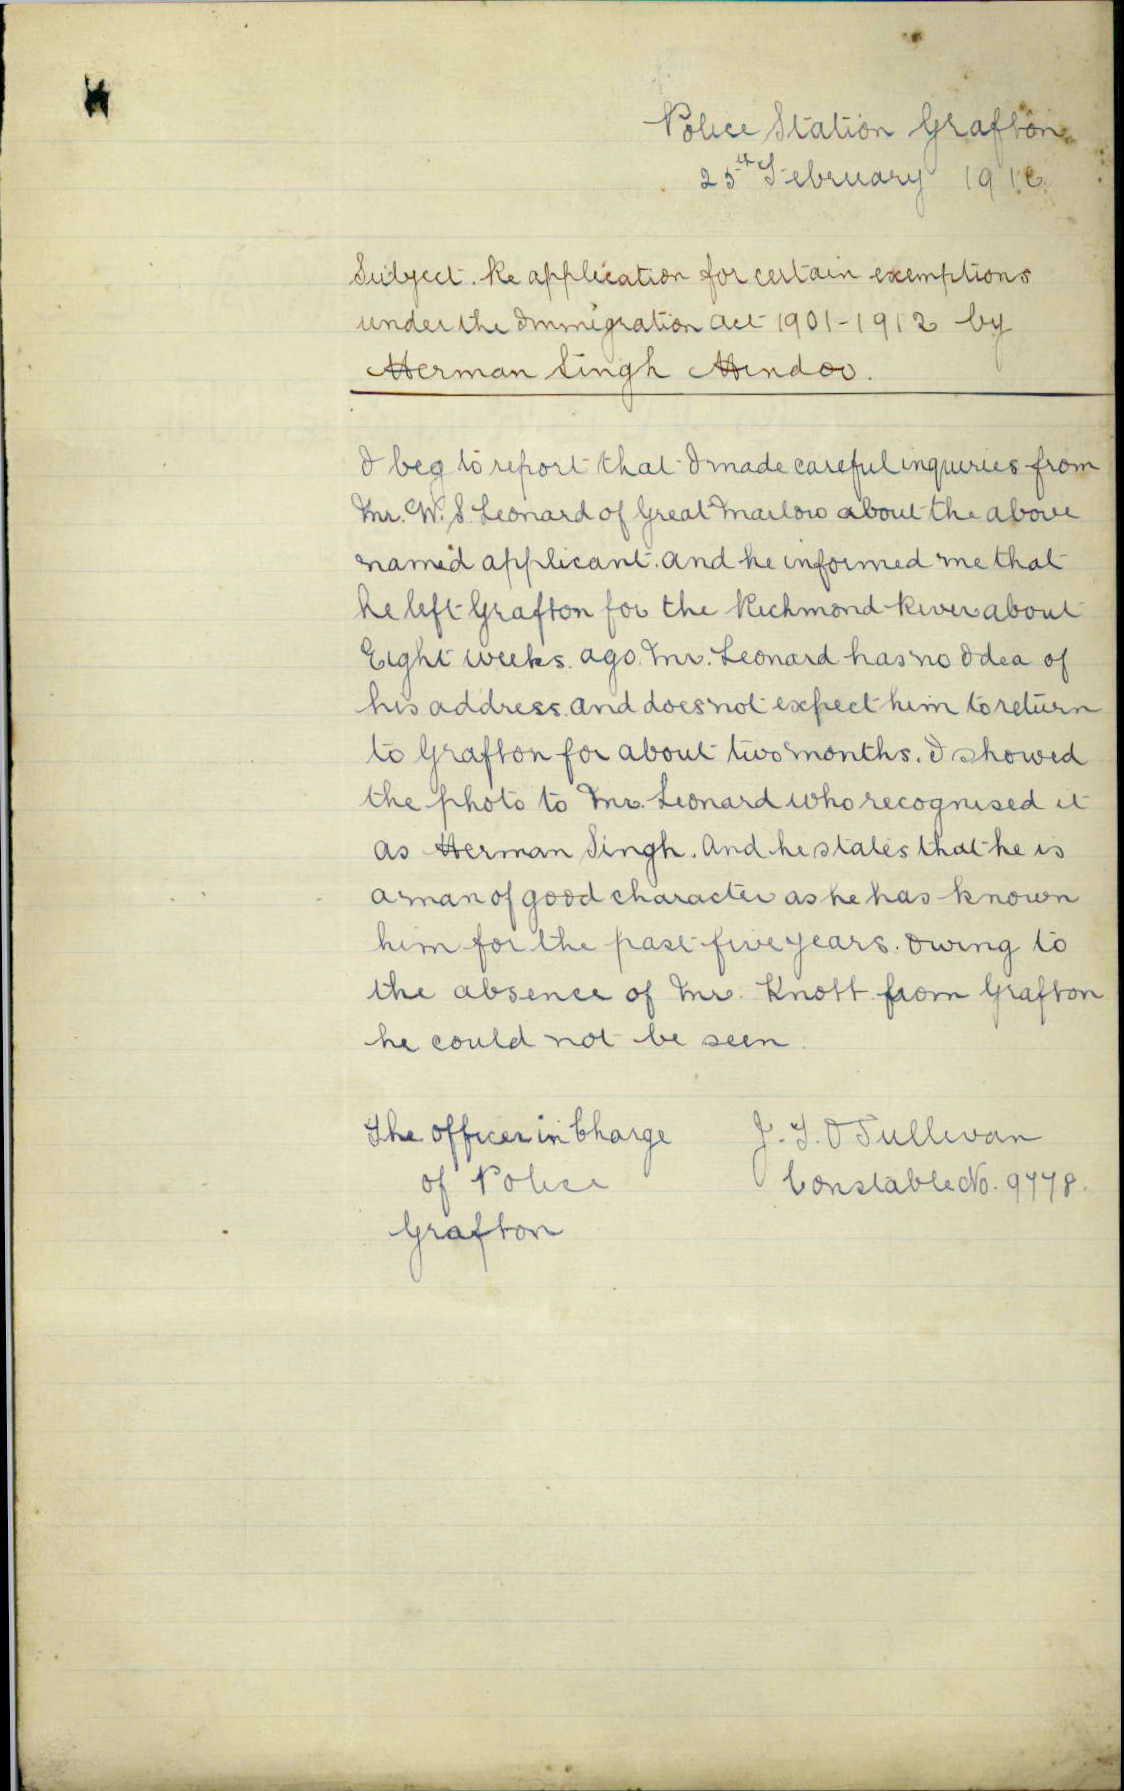 Police Station Grafton
25th February 1916
Subject. Re application for certain exemptions
under the Immigration Act 1901-1912 by
Herman Singh Hindoo.
I beg to report that I made careful inquiries from
Mr. W. S. Leonard of Great Marlow about the above
named applicant. And he informed me that
he left Grafton for the Richmond River about
Eight weeks ago. Mr. Leonard has no Idea of
his address. And does not expect him to return
to Grafton for about two months. I showed
the photo to Mr. Leonard who recognised it
as Herman Singh. And he states that he is
a man of good character as he has known
him for the past five years. Owing to
the absence of Mr. Knott from Grafton
he could not be seen.
The Officer in Charge J. T. O Sullivan
of Police Constable No. 9778.
Grafton